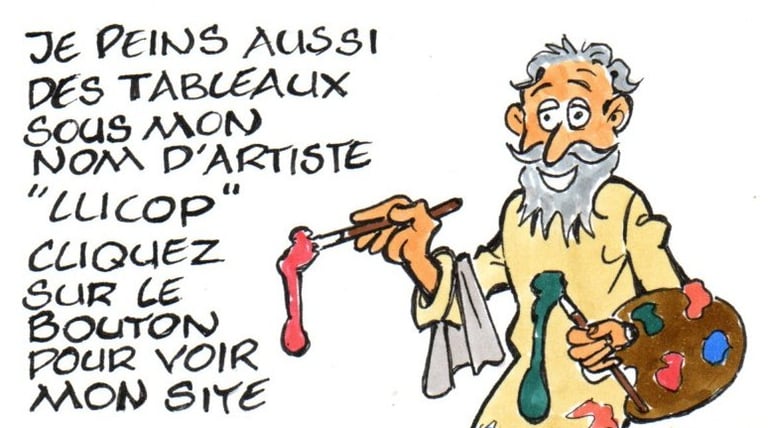 JE PEINS AUSSI
DES TABLEAUX
SOUS MON
NOM D'ARTISTE
"LLICOP"
CLIQUEZ
SUR LE
BOUTON
POUR VOIR
MON SITE